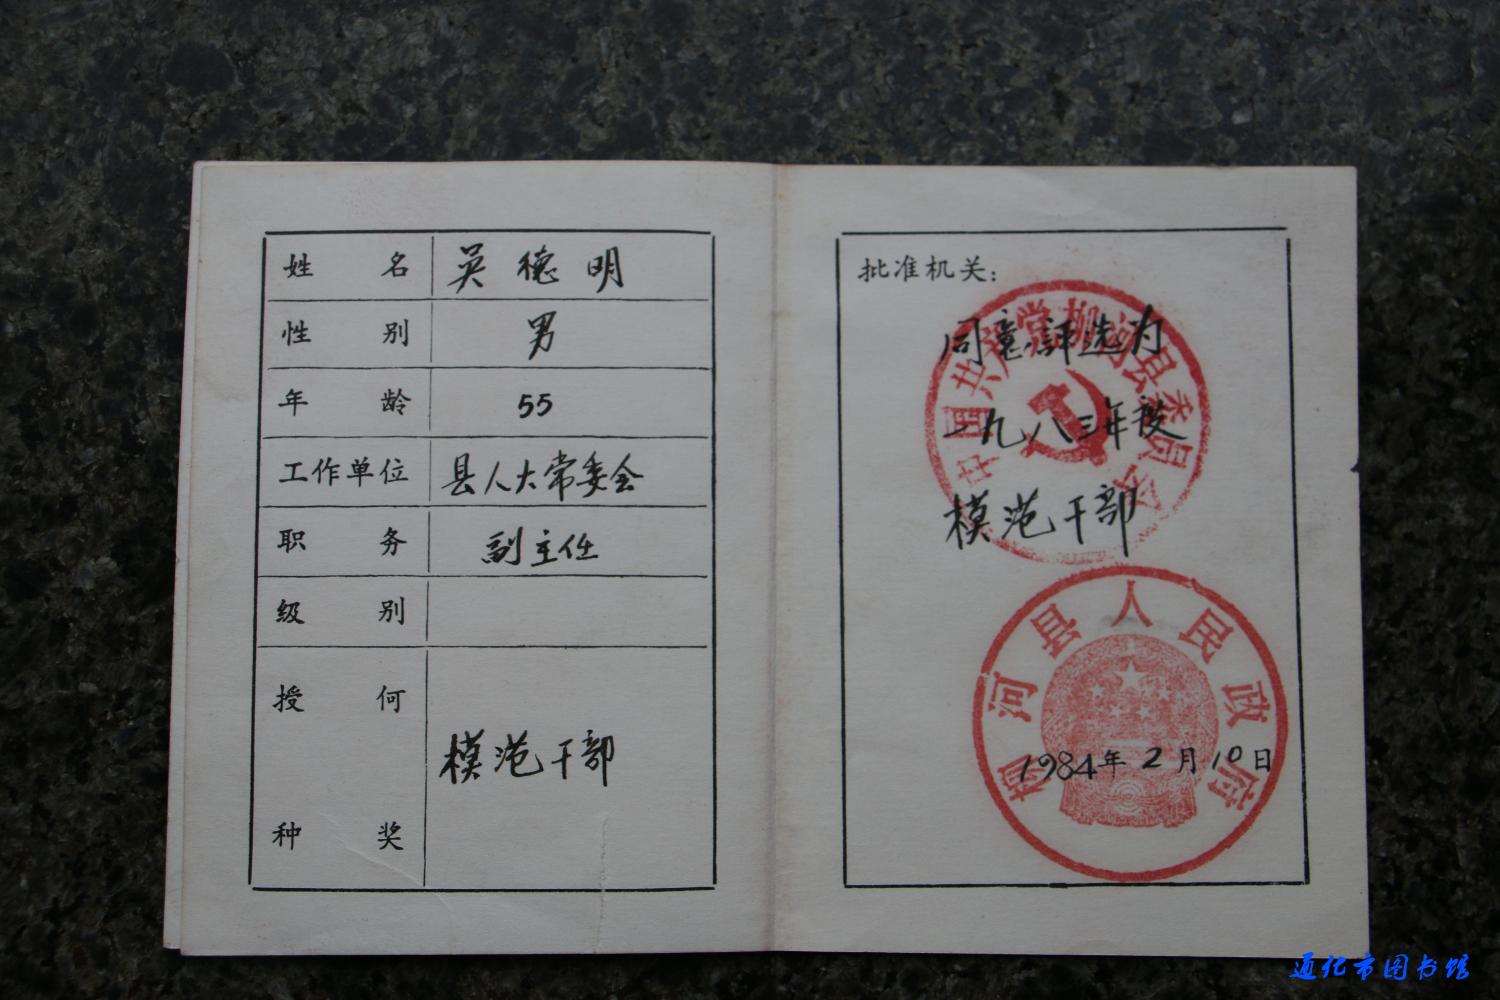 姓名 英德明
性别 男
年龄 55
工作单位 县人大常委会
职务 副主任
级别
授何种奖 模范干部
批准机关:
同意評选为
一九八三年度
模范干部
中国共产党柳河县委员会
柳河县人民政府
1984年2月10日
通化市图书馆